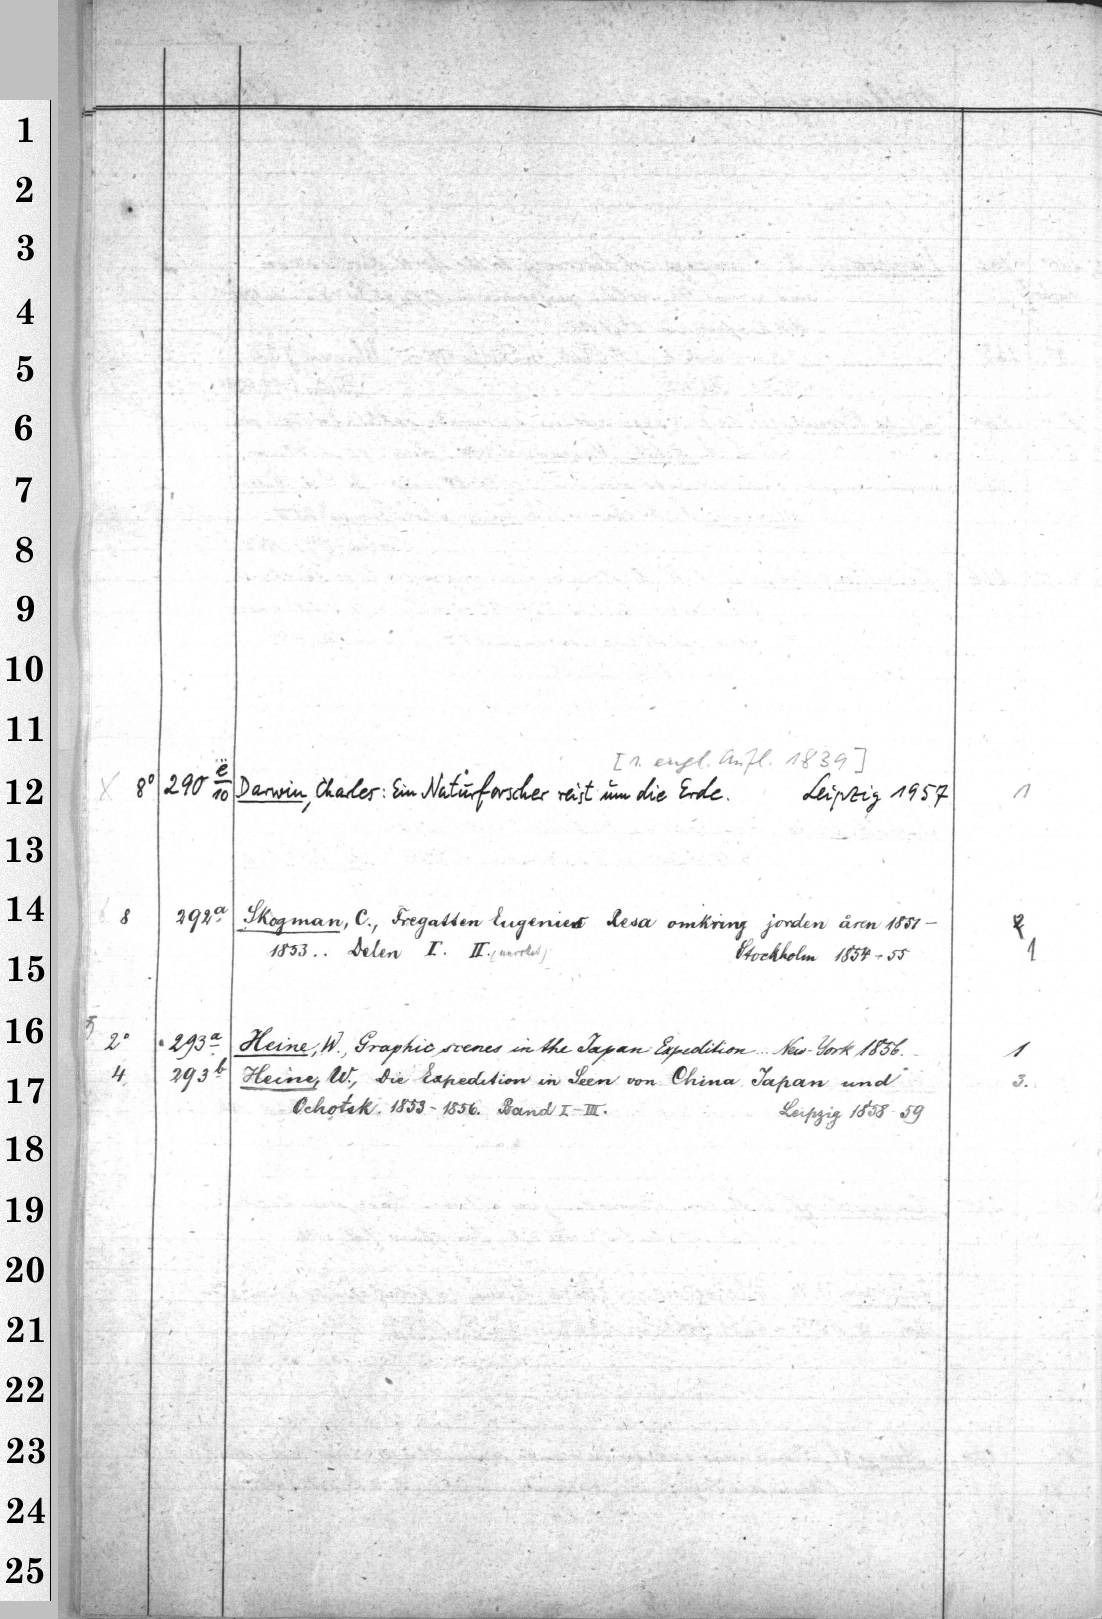 1
2
3
4
5
6
7
8
9
10
11
[1. engl. Aufl. 1839]
12 X 8° 290 ë/10 Darwin, Charles: Ein Naturforscher reist um die Erde. Leipzig 1957 1
13
14 8 292a Skogman, C., Fregatten Eugenies Resa omkring jorden åren 1851- 2
15 1853.. Delen I. II. Stockholm 1854-55 1
16 2° 293a Heine, W., Graphic scenes in the Japan Expedition... New-York 1856. 1
17 4 293b Heine, W., Die Expedition in Seen von China Japan und 3.
Ochotsk. 1853-1856. Band I-III. Leipzig 1858-59
18
19
20
21
22
23
24
25